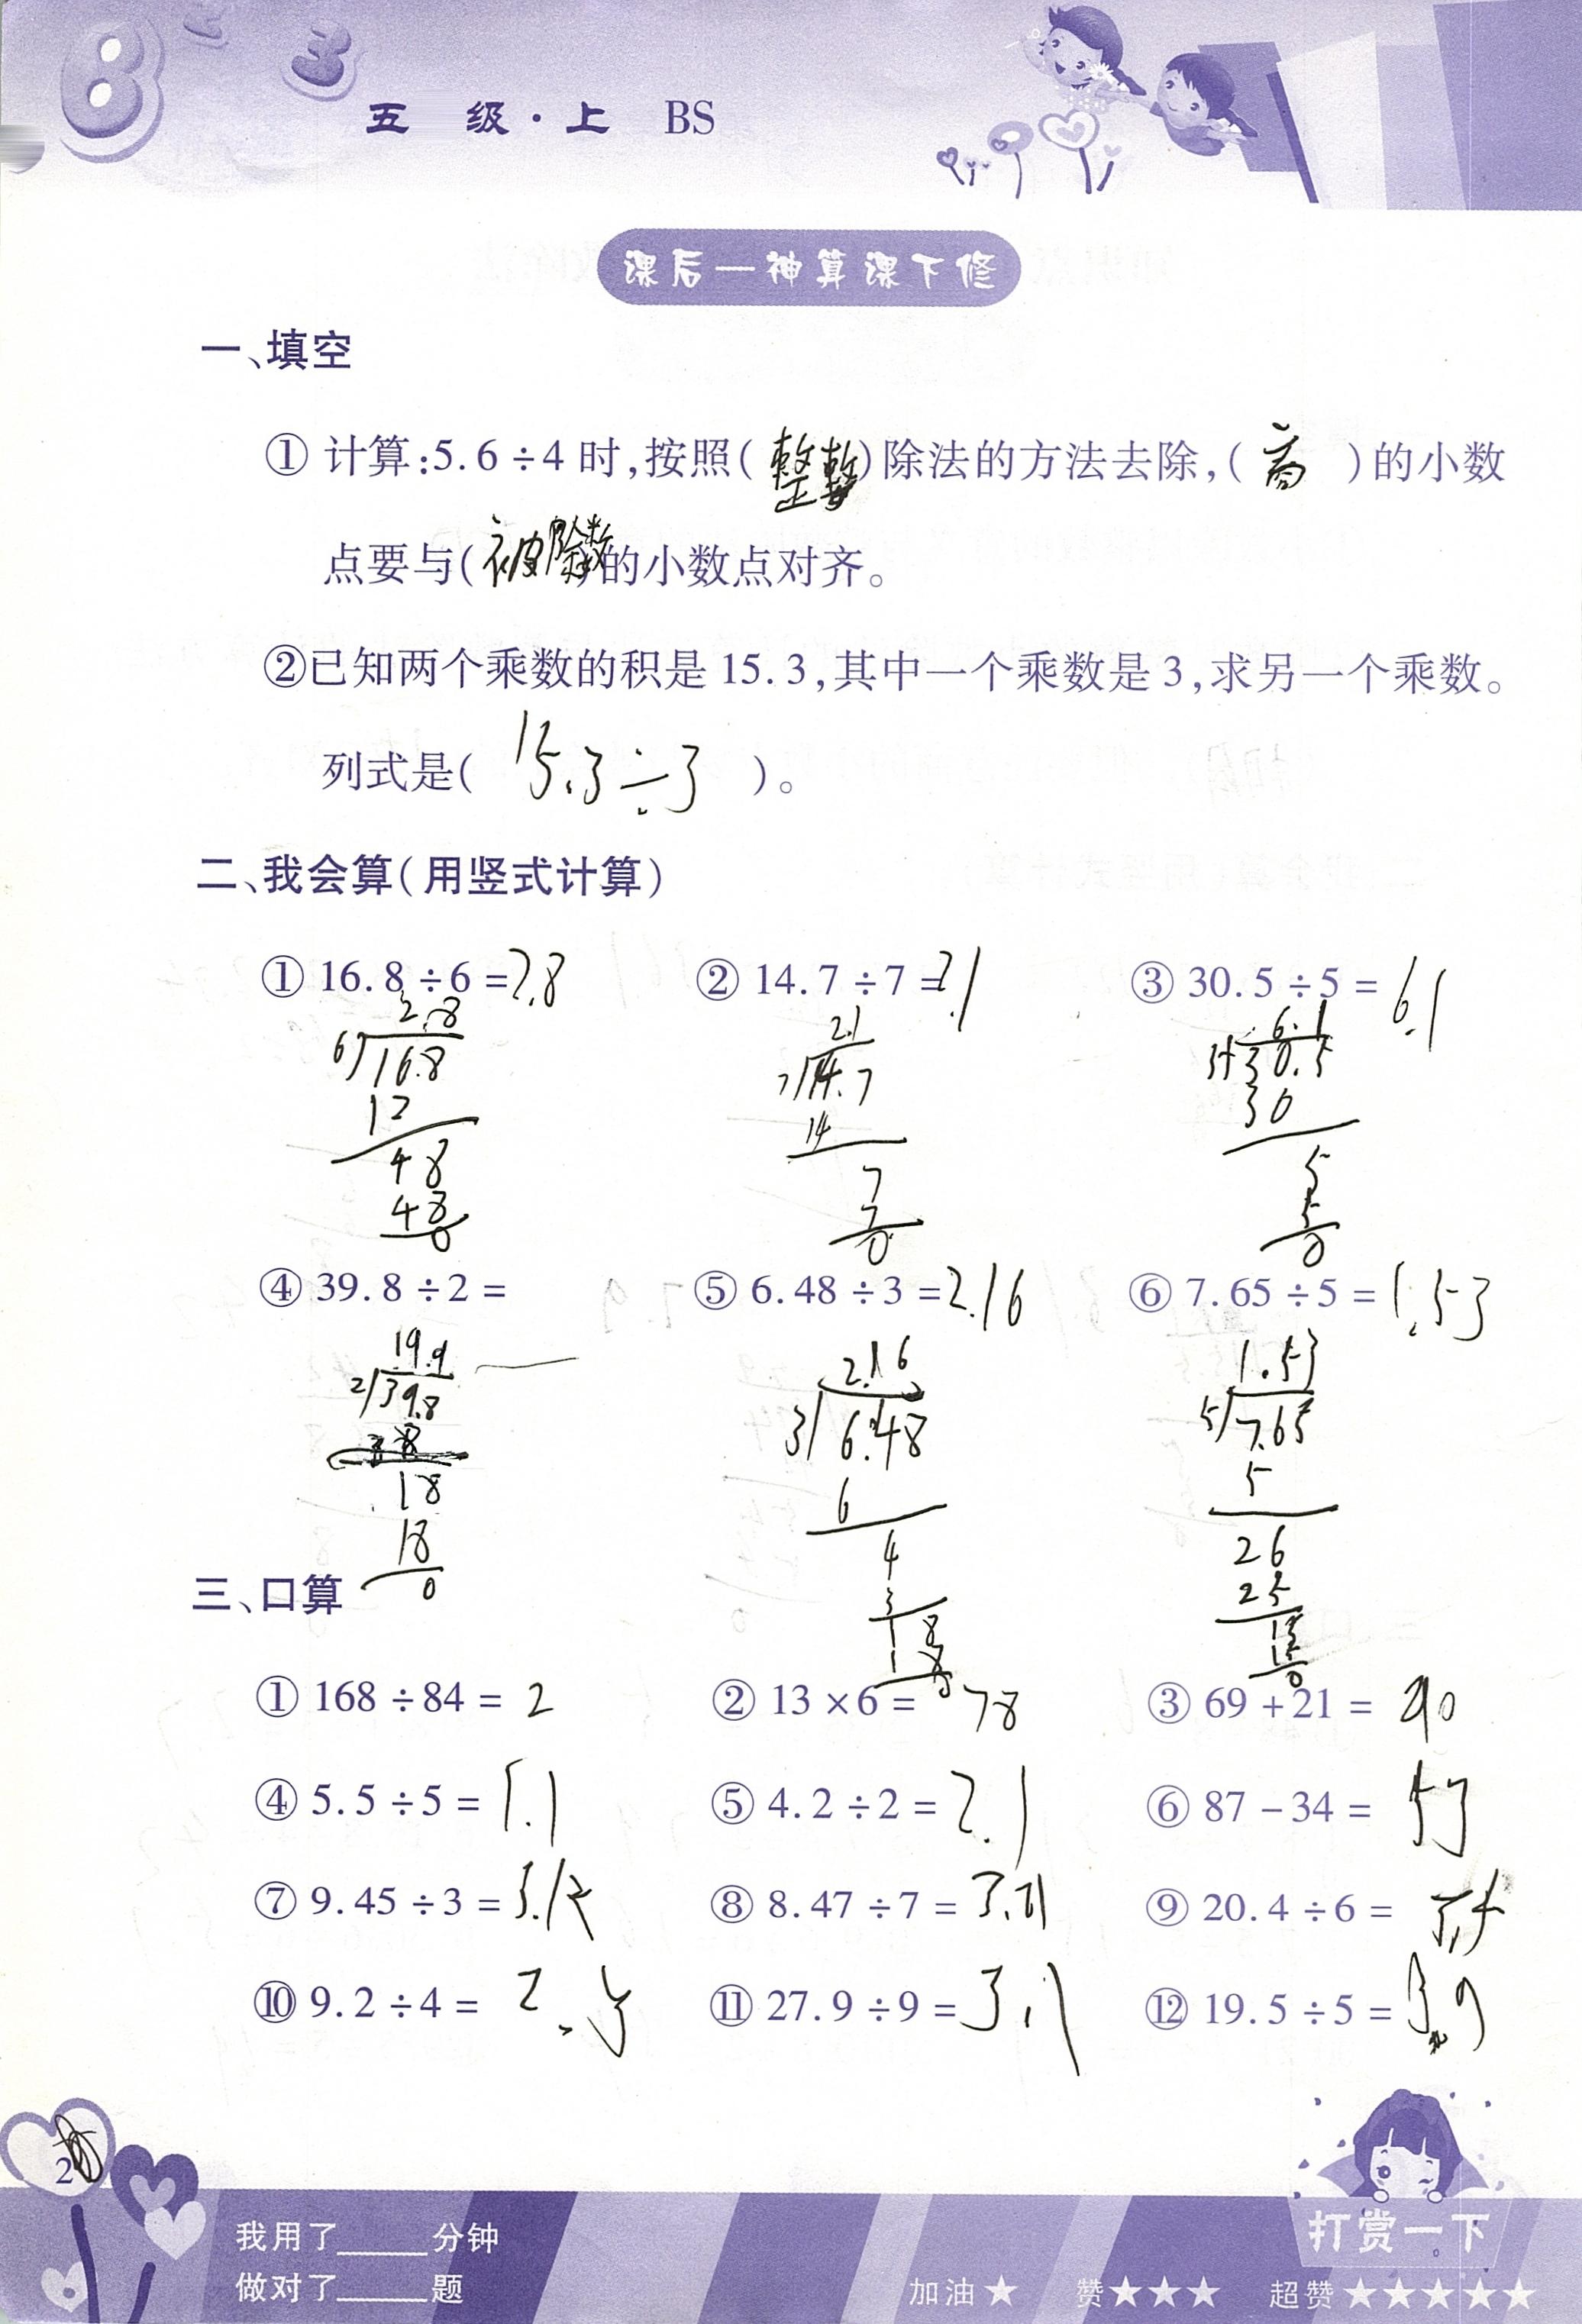 五 级·上 BS
课后一神算课下修
一、填空
① 计算:5.6÷4时,按照(整数)除法的方法去除,(商)的小数
点要与(被除数)的小数点对齐。
②已知两个乘数的积是15.3,其中一个乘数是3,求另一个乘数。
列式是( 15.3÷3 )。
二、我会算(用竖式计算)
① 16.8÷6=2.8 ② 14.7÷7=2.1 ③ 30.5÷5=6.1
2.8 2.1 6.1
6 16.8 7 14.7 5 30.5
12 14 30
48 7 5
48 7 5
0 0 0
④ 39.8÷2= ⑤ 6.48÷3=2.16 ⑥ 7.65÷5=1.53
19.9 2.16 1.53
2 39.8 3 6.48 5 7.65
6 5
18 4 26
18 3 25
0 18 15
18 15
0 0
三、口算
① 168÷84=2 ② 13×6=78 ③ 69+21=90
④ 5.5÷5=1.1 ⑤ 4.2÷2=2.1 ⑥ 87-34=53
⑦ 9.45÷3=3.15 ⑧ 8.47÷7= ⑨ 20.4÷6=
⑩ 9.2÷4= ⑪ 27.9÷9=3.1 ⑫ 19.5÷5=3.9
2
打赏一下
我用了____分钟
做对了____题
加油★ 赞★★★ 超赞★★★★★